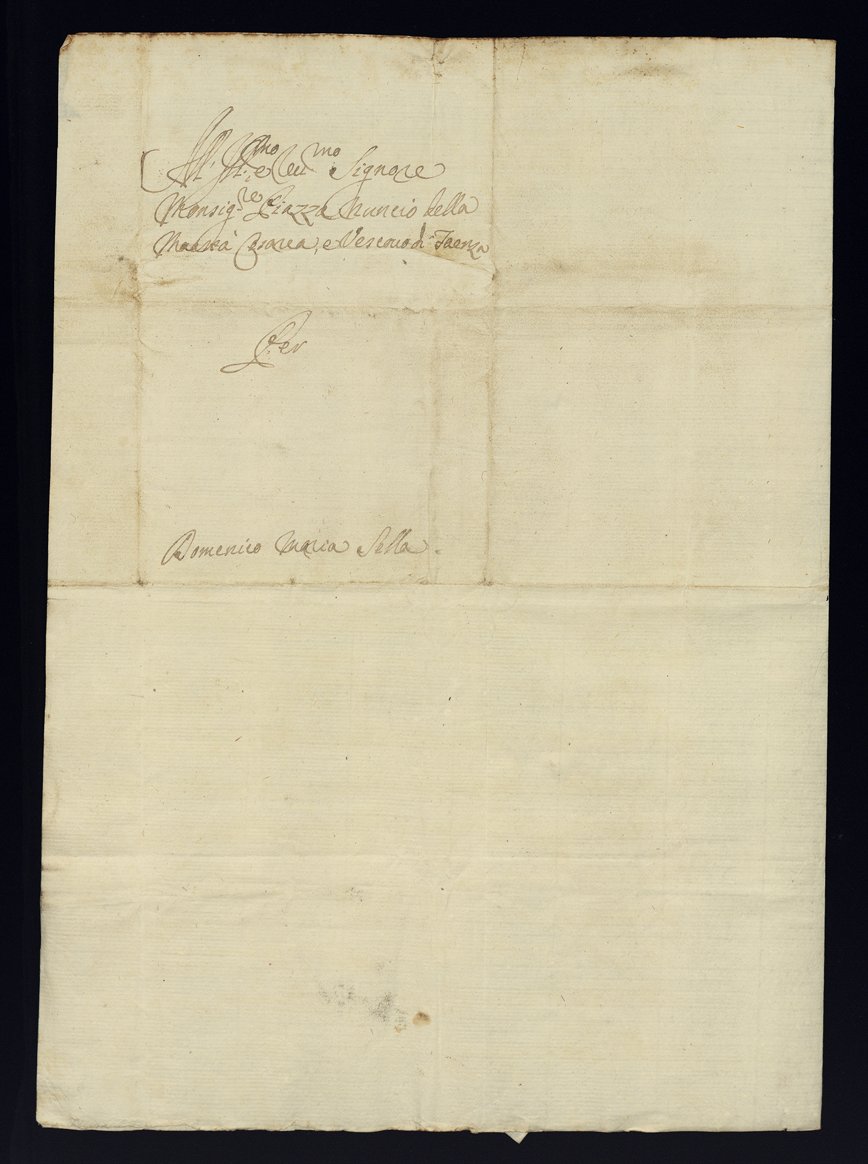 All' Ill.mo e Reu.mo Signore
Monsig.re Piazza Nuncio della
Maestà Cesarea, e Vescouo di Faenza
Per
Domenico Maria Sella.